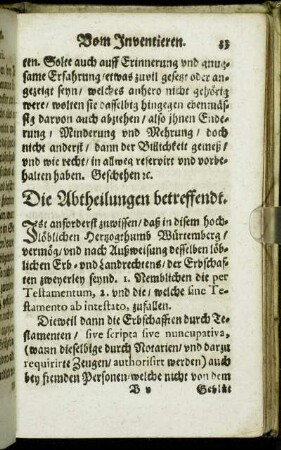 Vom Inventieren. 25
ten. Solte auch auff Erinnerung vnd gnug-
same Erfahrung/etwas zuvil gesetzt oder an-
gezeigt seyn/ welches anhero nicht gehörig
were/ wolten sie dasselbig hingegen ebenmäs-
sig darvon auch abziehen/ also jhnen Ende-
rung/ Minderung vnd Mehrung/ doch
nicht anderst/ dann der Billichkeit gemeß/
vnd wie recht/ in allweg reservirt vnd vorbe-
halten haben. Geschehen ꝛc.
Die Abtheilungen betreffendt.
Ist anforderst zuwissen/ daß in disem hoch-
löblichen Hertzogthumb Würtemberg/
vermög/ vnd nach Außweisung desselben löb-
lichen Erb- vnd Landrechtens/ der Erbschaf-
ten zweyerley seynd. 1. Nemblichen die per
Testamentum, 2. vnd die/ welche sine Te-
stamento ab intestato, zufallen.
Dieweil dann die Erbschafften durch Te-
stamenten/ sive scripta sive nuncupativa,
(wann dieselbige durch Notarien/ vnd darzu
requirirte Zeugen/ authorisirt werden) auch
bey frembden Personen/welche nicht von dem
B v Geblüt